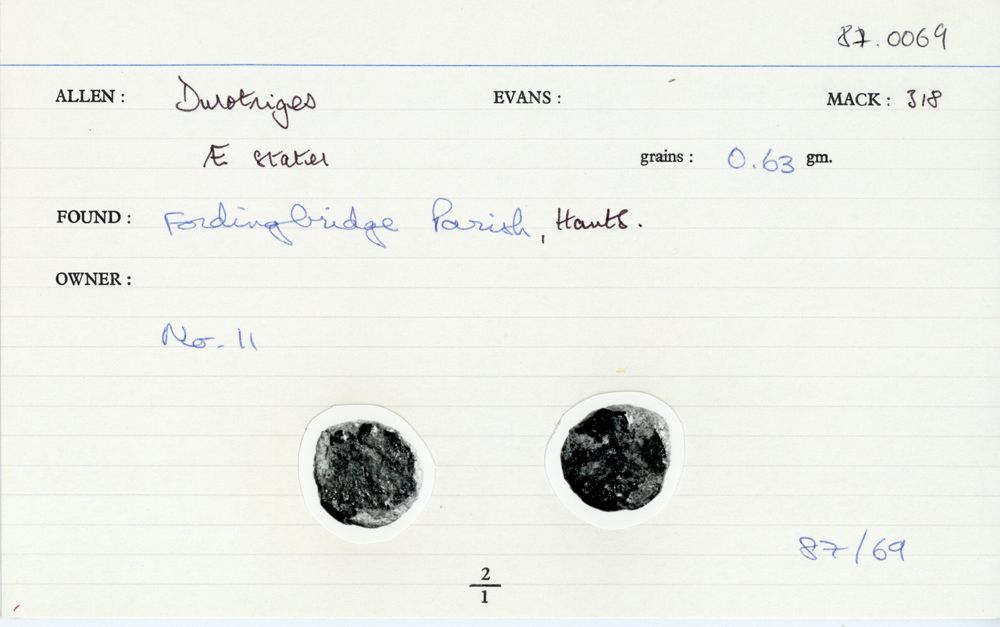 87.0069
ALLEN : Durotriges EVANS : MACK : 318
Æ stater grains : 0.63 gm.
FOUND : Fordingbridge Parish, Hants.
OWNER :
No. 11
87/69
2
1